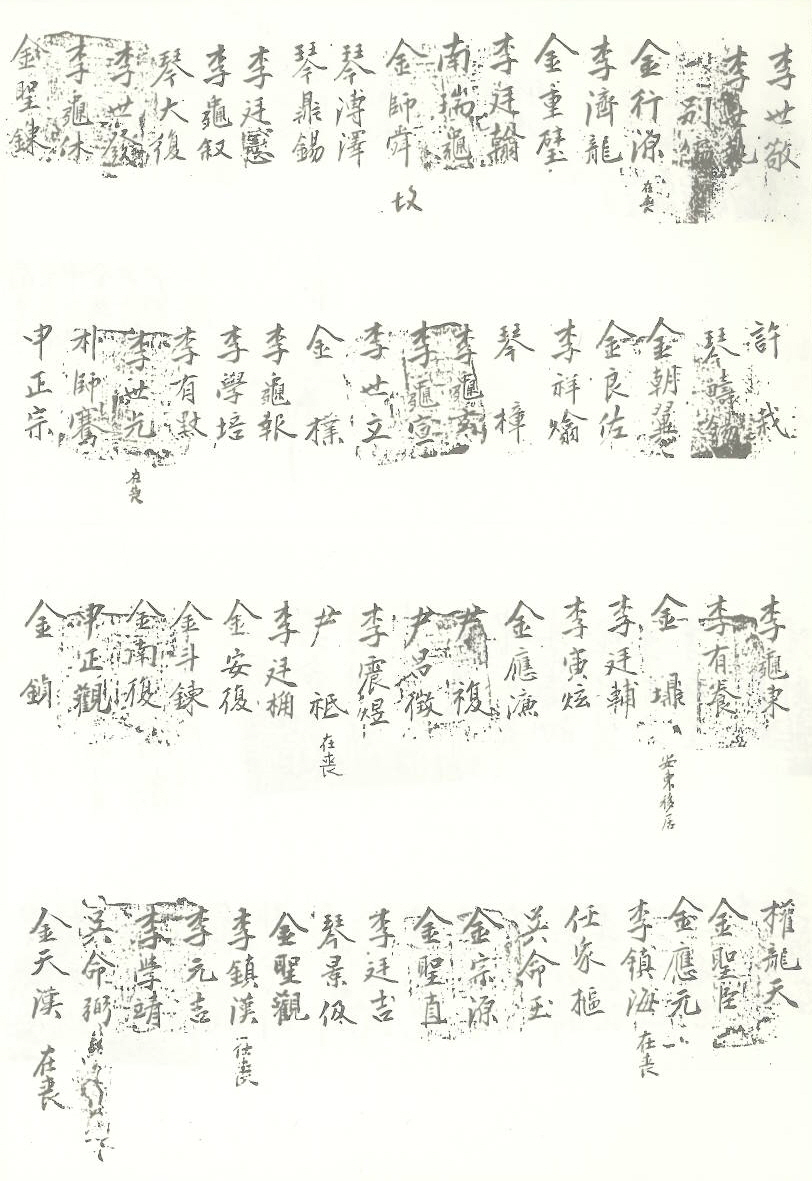 李世敬
李世
別
金行源 在喪
李濟龍
金重璧
李廷翰
南瑞龜
金師舜 故
琴溥澤
琴鼎錫
李廷憲
李龜叙
琴大復
李世發
李龜休
金聖鍊
許栽
琴疇錫
金朝翼
金良佐
李祥爚
琴樟
李龜
李龜宣
李世立
金樸
李龜報
李學培
李有
李世元 在喪
朴師騫
申正宗
李龜
李有養
金鼎 安東移居
李廷輔
李寅炫
金應濂
尹復
尹呂徵
李震煜
尹祗 在喪
李廷桷
金安復
金斗鍊
金南復
申正觀
金鎮
權龍天
金聖臣
金應元
李鎮海 在喪
任家樞
吳命玉
金宗源
金聖直
李廷吉
琴景伋
金聖觀
李鎮漢 在喪
李元志
李學靖
吳命弼
金天漢 在喪